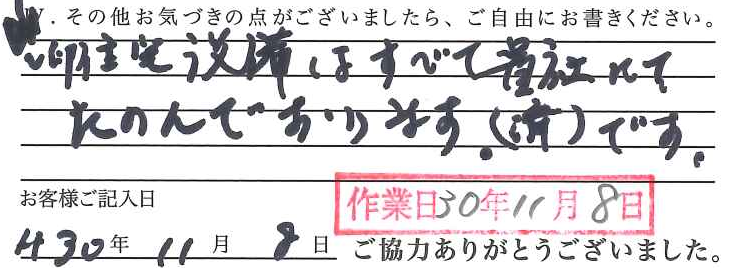 Ⅳ. その他お気づきの点がございましたら、ご自由にお書きください。
住宅設備はすべて貴社にて
たのんでおります。(済)です。
お客様ご記入日
作業日30年11月8日
H30年 11月 8日 ご協力ありがとうございました。